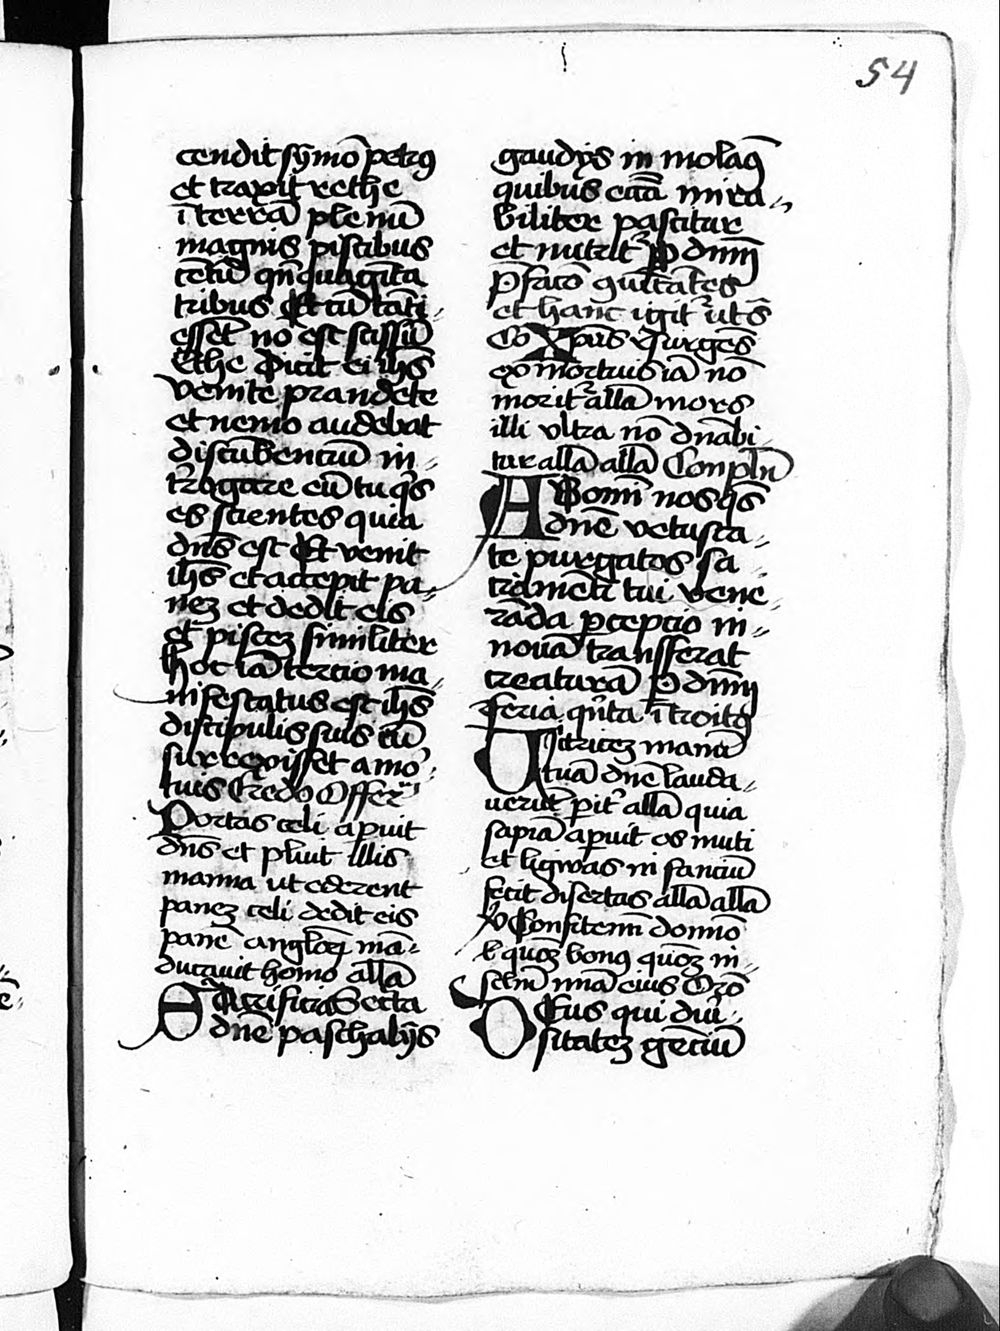 54
cendit sȳmō petrꝰ
et traxit rethe
ī terrā plenū
magnis piscibus
cētū qn̄quagīta
tribus Et cū tāti
essēt nō est scissū
rethe Dicit ei ih̄s
venite prandete
et nemo audebat
discūbenciū in
t̄rogare eū tu q̄s
es scientes quia
dn̄s est Et venit
ih̄s et accepit pa
neꝫ et dedit eis
et pisceꝫ similiter
hoc iā tercio ma
nifestatus est ih̄s
discipulis suis cū
surrexisset a mor
tuis Credo Offer̄
Portas celi apuit
dn̄s et pluit illis
manna ut ederent
paneꝫ celi dedit eis
panē angloꝝ mā
ducauit homo allā
Sacrificia Secta
dn̄e paschalijs
gaudijs īmolaꝰ
quibus eccīa mira
biliter pascitur
et nutrit̄ P dn̄m
p̄facō
et hanc igit̄ ut s̄
Co Xpūs resurgēs
ex mortuis iā nō
morit̄ allā mors
illi vltra nō dn̄abi
tur allā allā Conpln̄
AB omī nos q̄s
dn̄e vetusta
te purgatos sa
cramēti tui vene
rāda ꝑcepcio in
nouā transferat
creaturā P dn̄m
feria qn̄ta ītroitꝰ
Uictriceꝫ manū
tuā dn̄e lauda
uerūt pit̄ allā quia
sapīa apuit os muti
et ligwas infanciū
fecit disertas allā allā
Confitemī domīo
quoꝫ bonꝰ quoꝫ in
sclm̄ mīa eius Orō
DEus qui diu̇
sitateꝫ gēciū